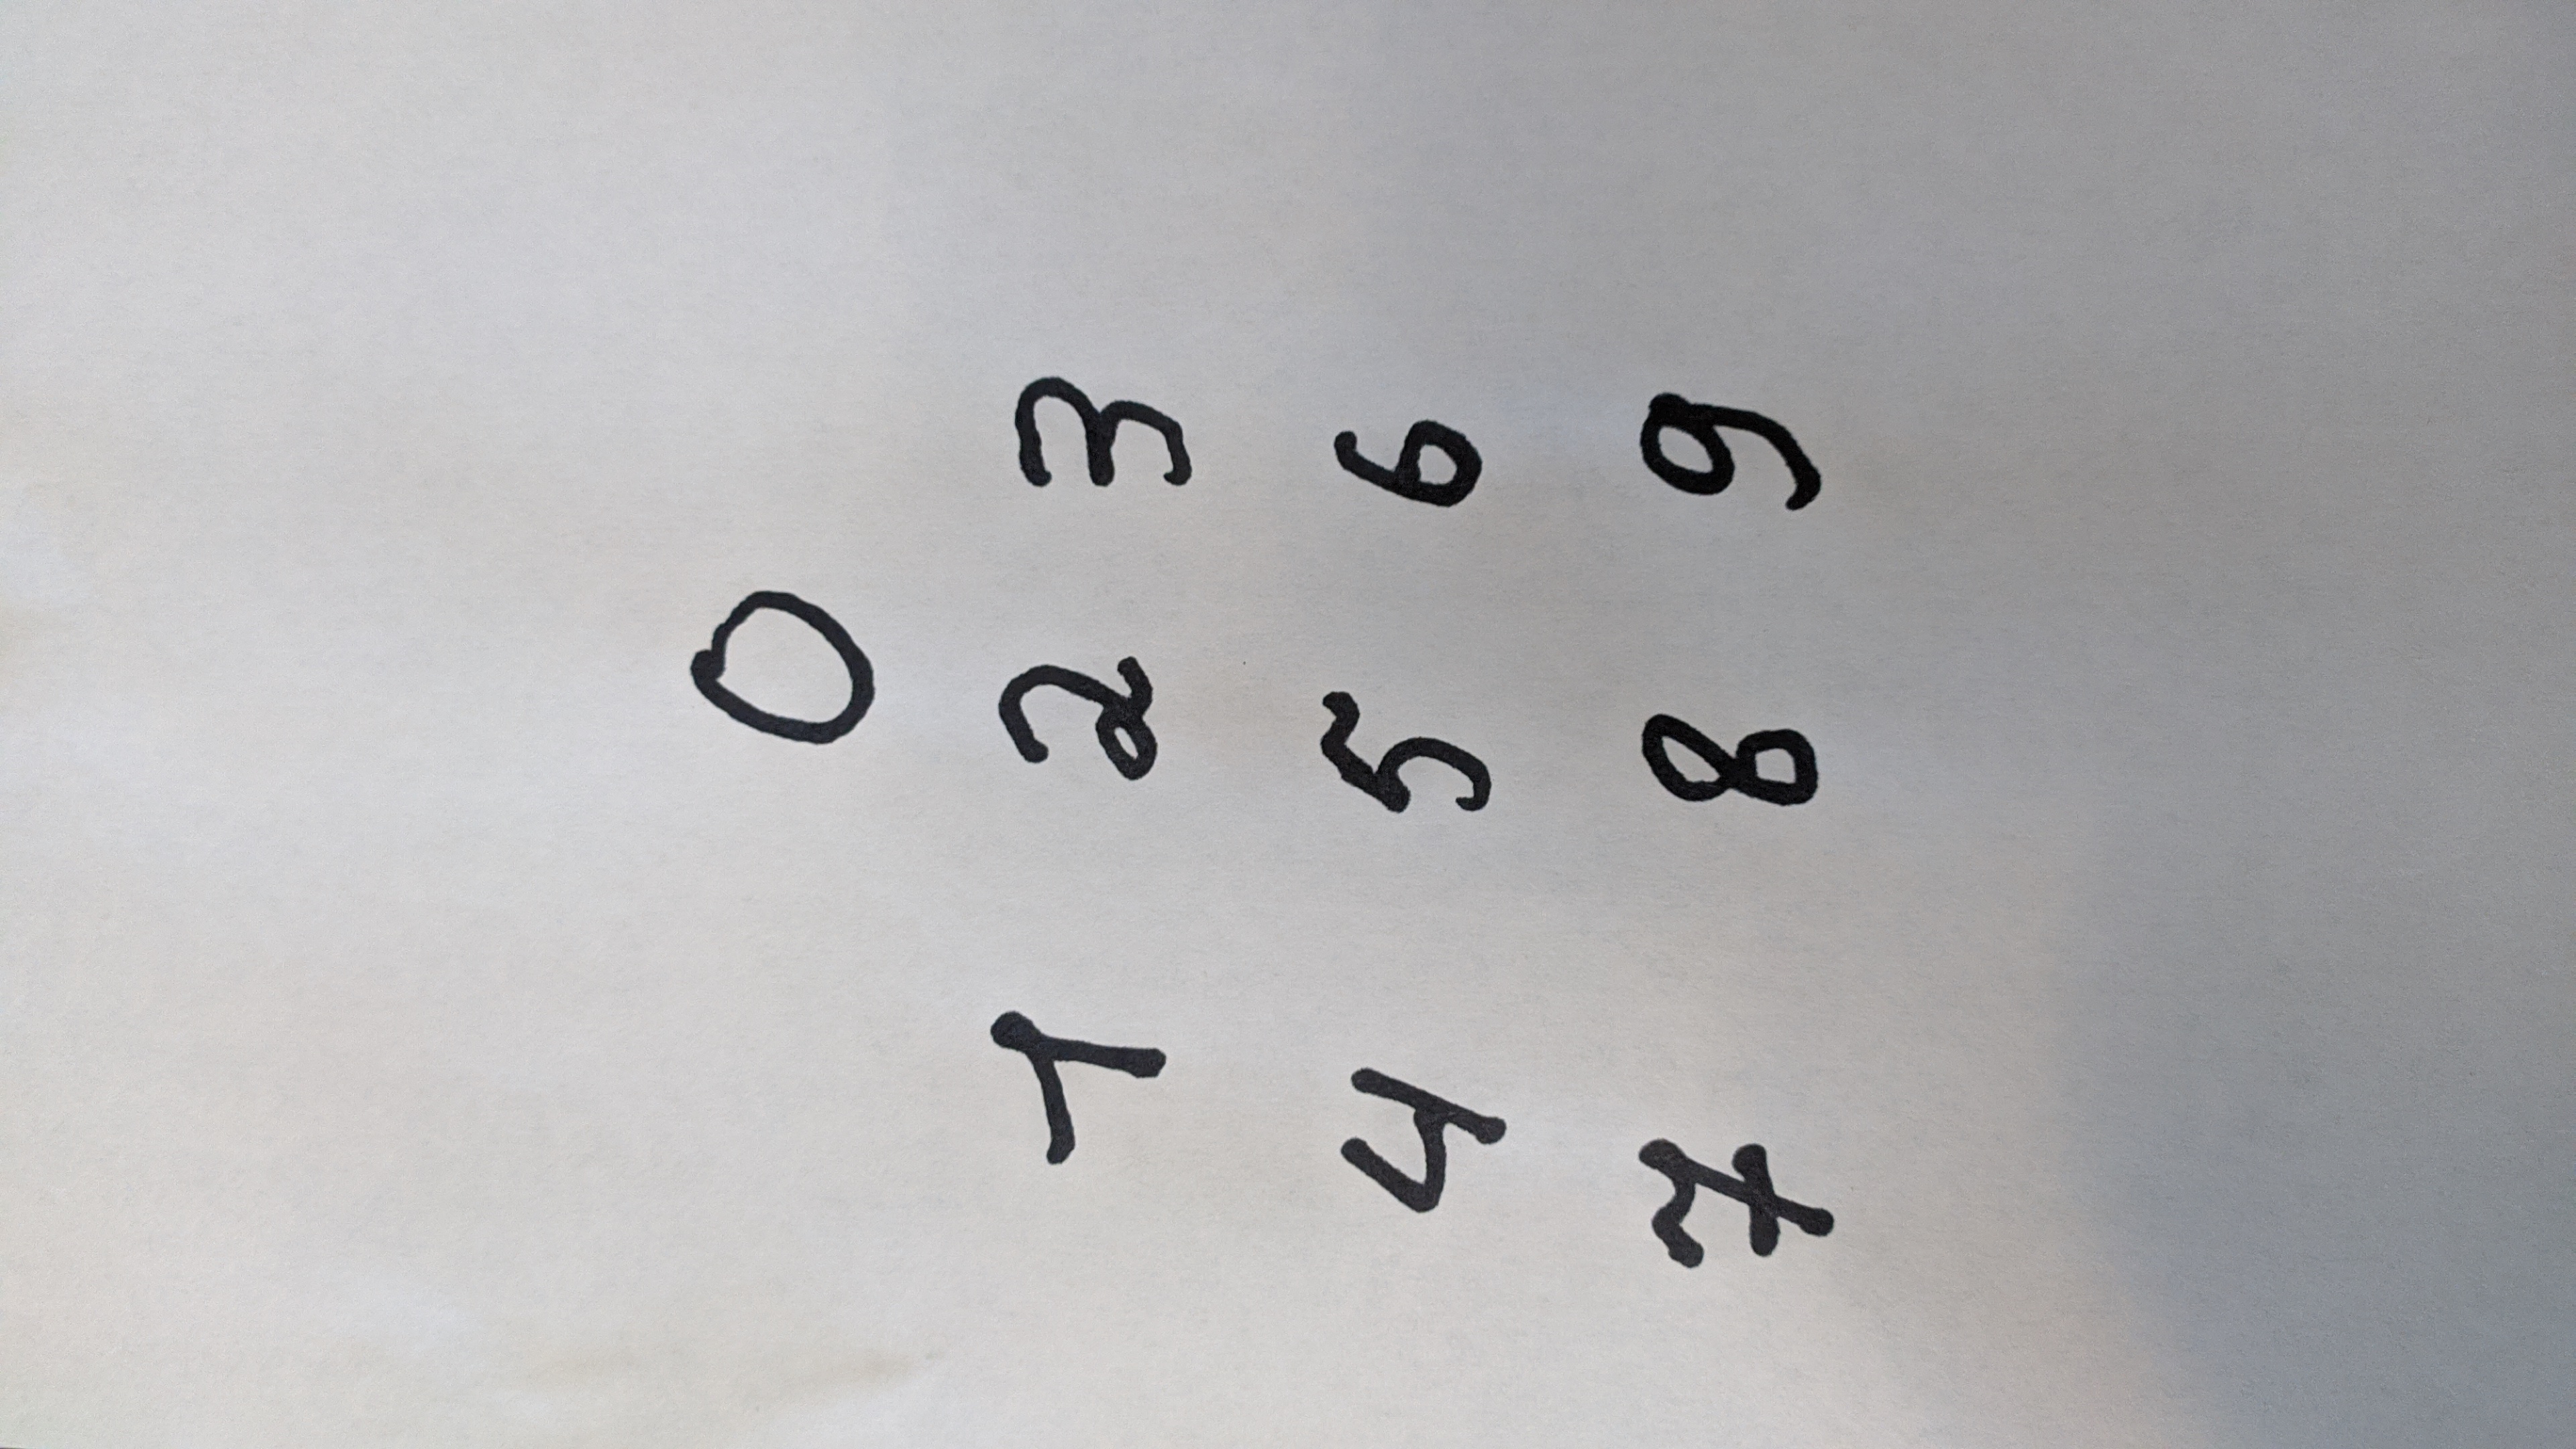 0
1 2 3
4 5 6
7 8 9